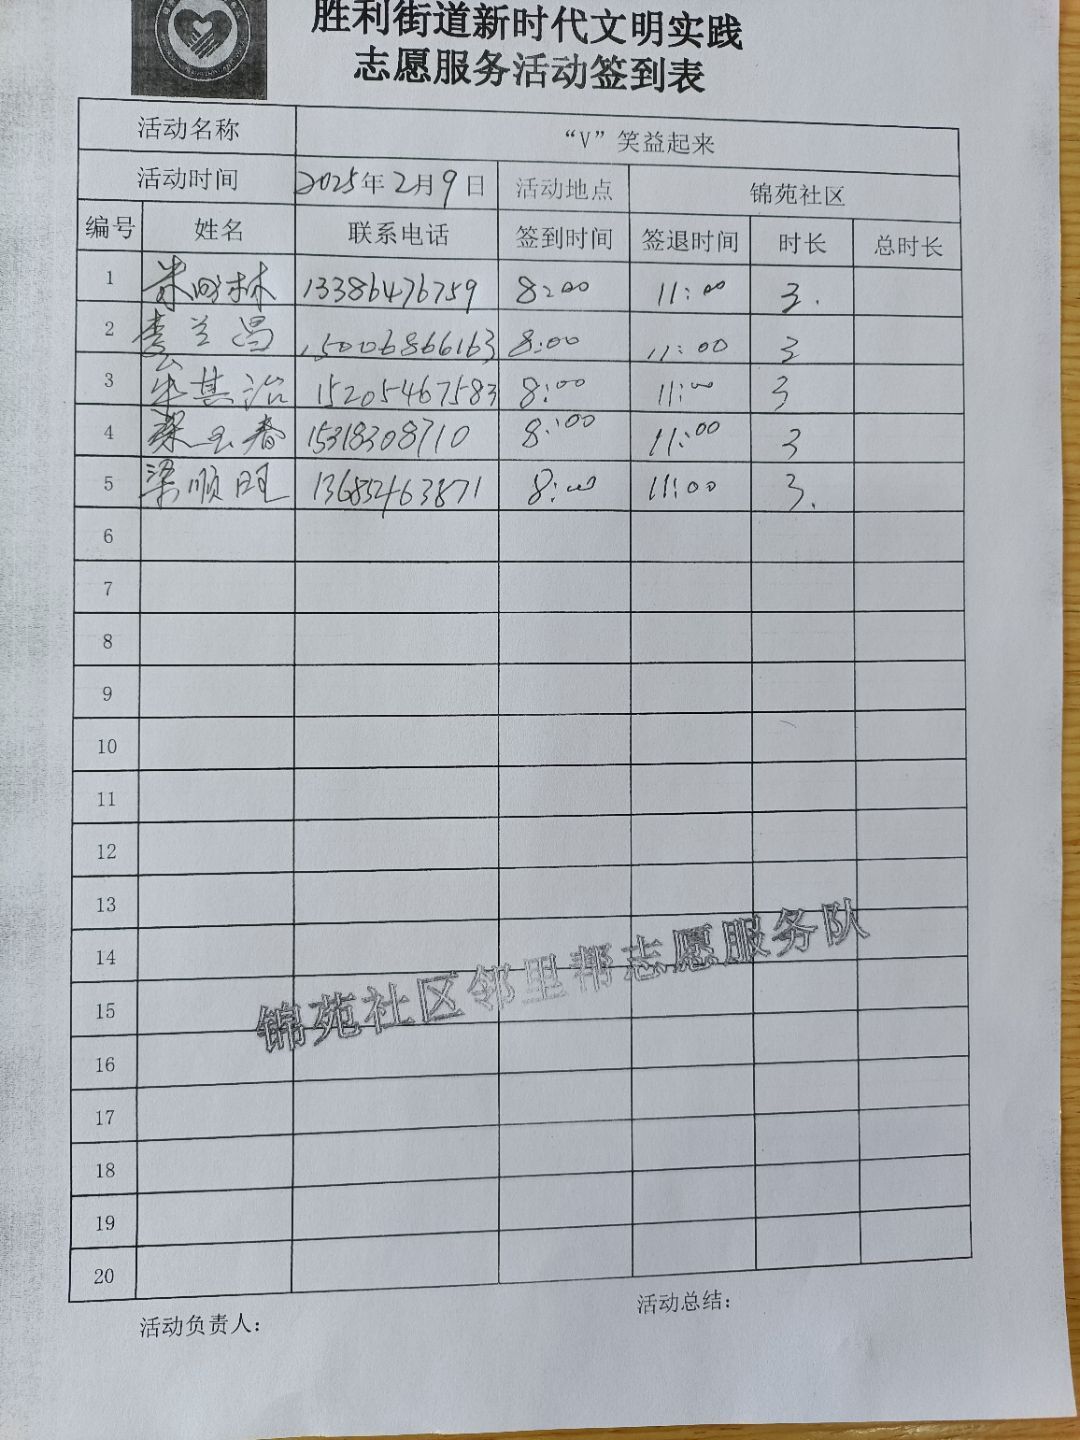 胜利街道新时代文明实践
志愿服务活动签到表
活动名称 “V”笑益起来
活动时间 2025年2月9日 活动地点 锦苑社区
编号 姓名 联系电话 签到时间 签退时间 时长 总时长
1 林 13386476759 8:00 11:00 3.
2 兰昌 15006866163 8:00 11:00 3
3 朱其治 15205467583 8:00 11:00 3
4 梁玉春 15318308710 8:00 11:00 3
5 梁顺旺 13685463871 8:00 11:00 3.
6
7
8
9
10
11
12
13
14
15
16
17
18
19
20
锦苑社区邻里帮志愿服务队
活动负责人：
活动总结：